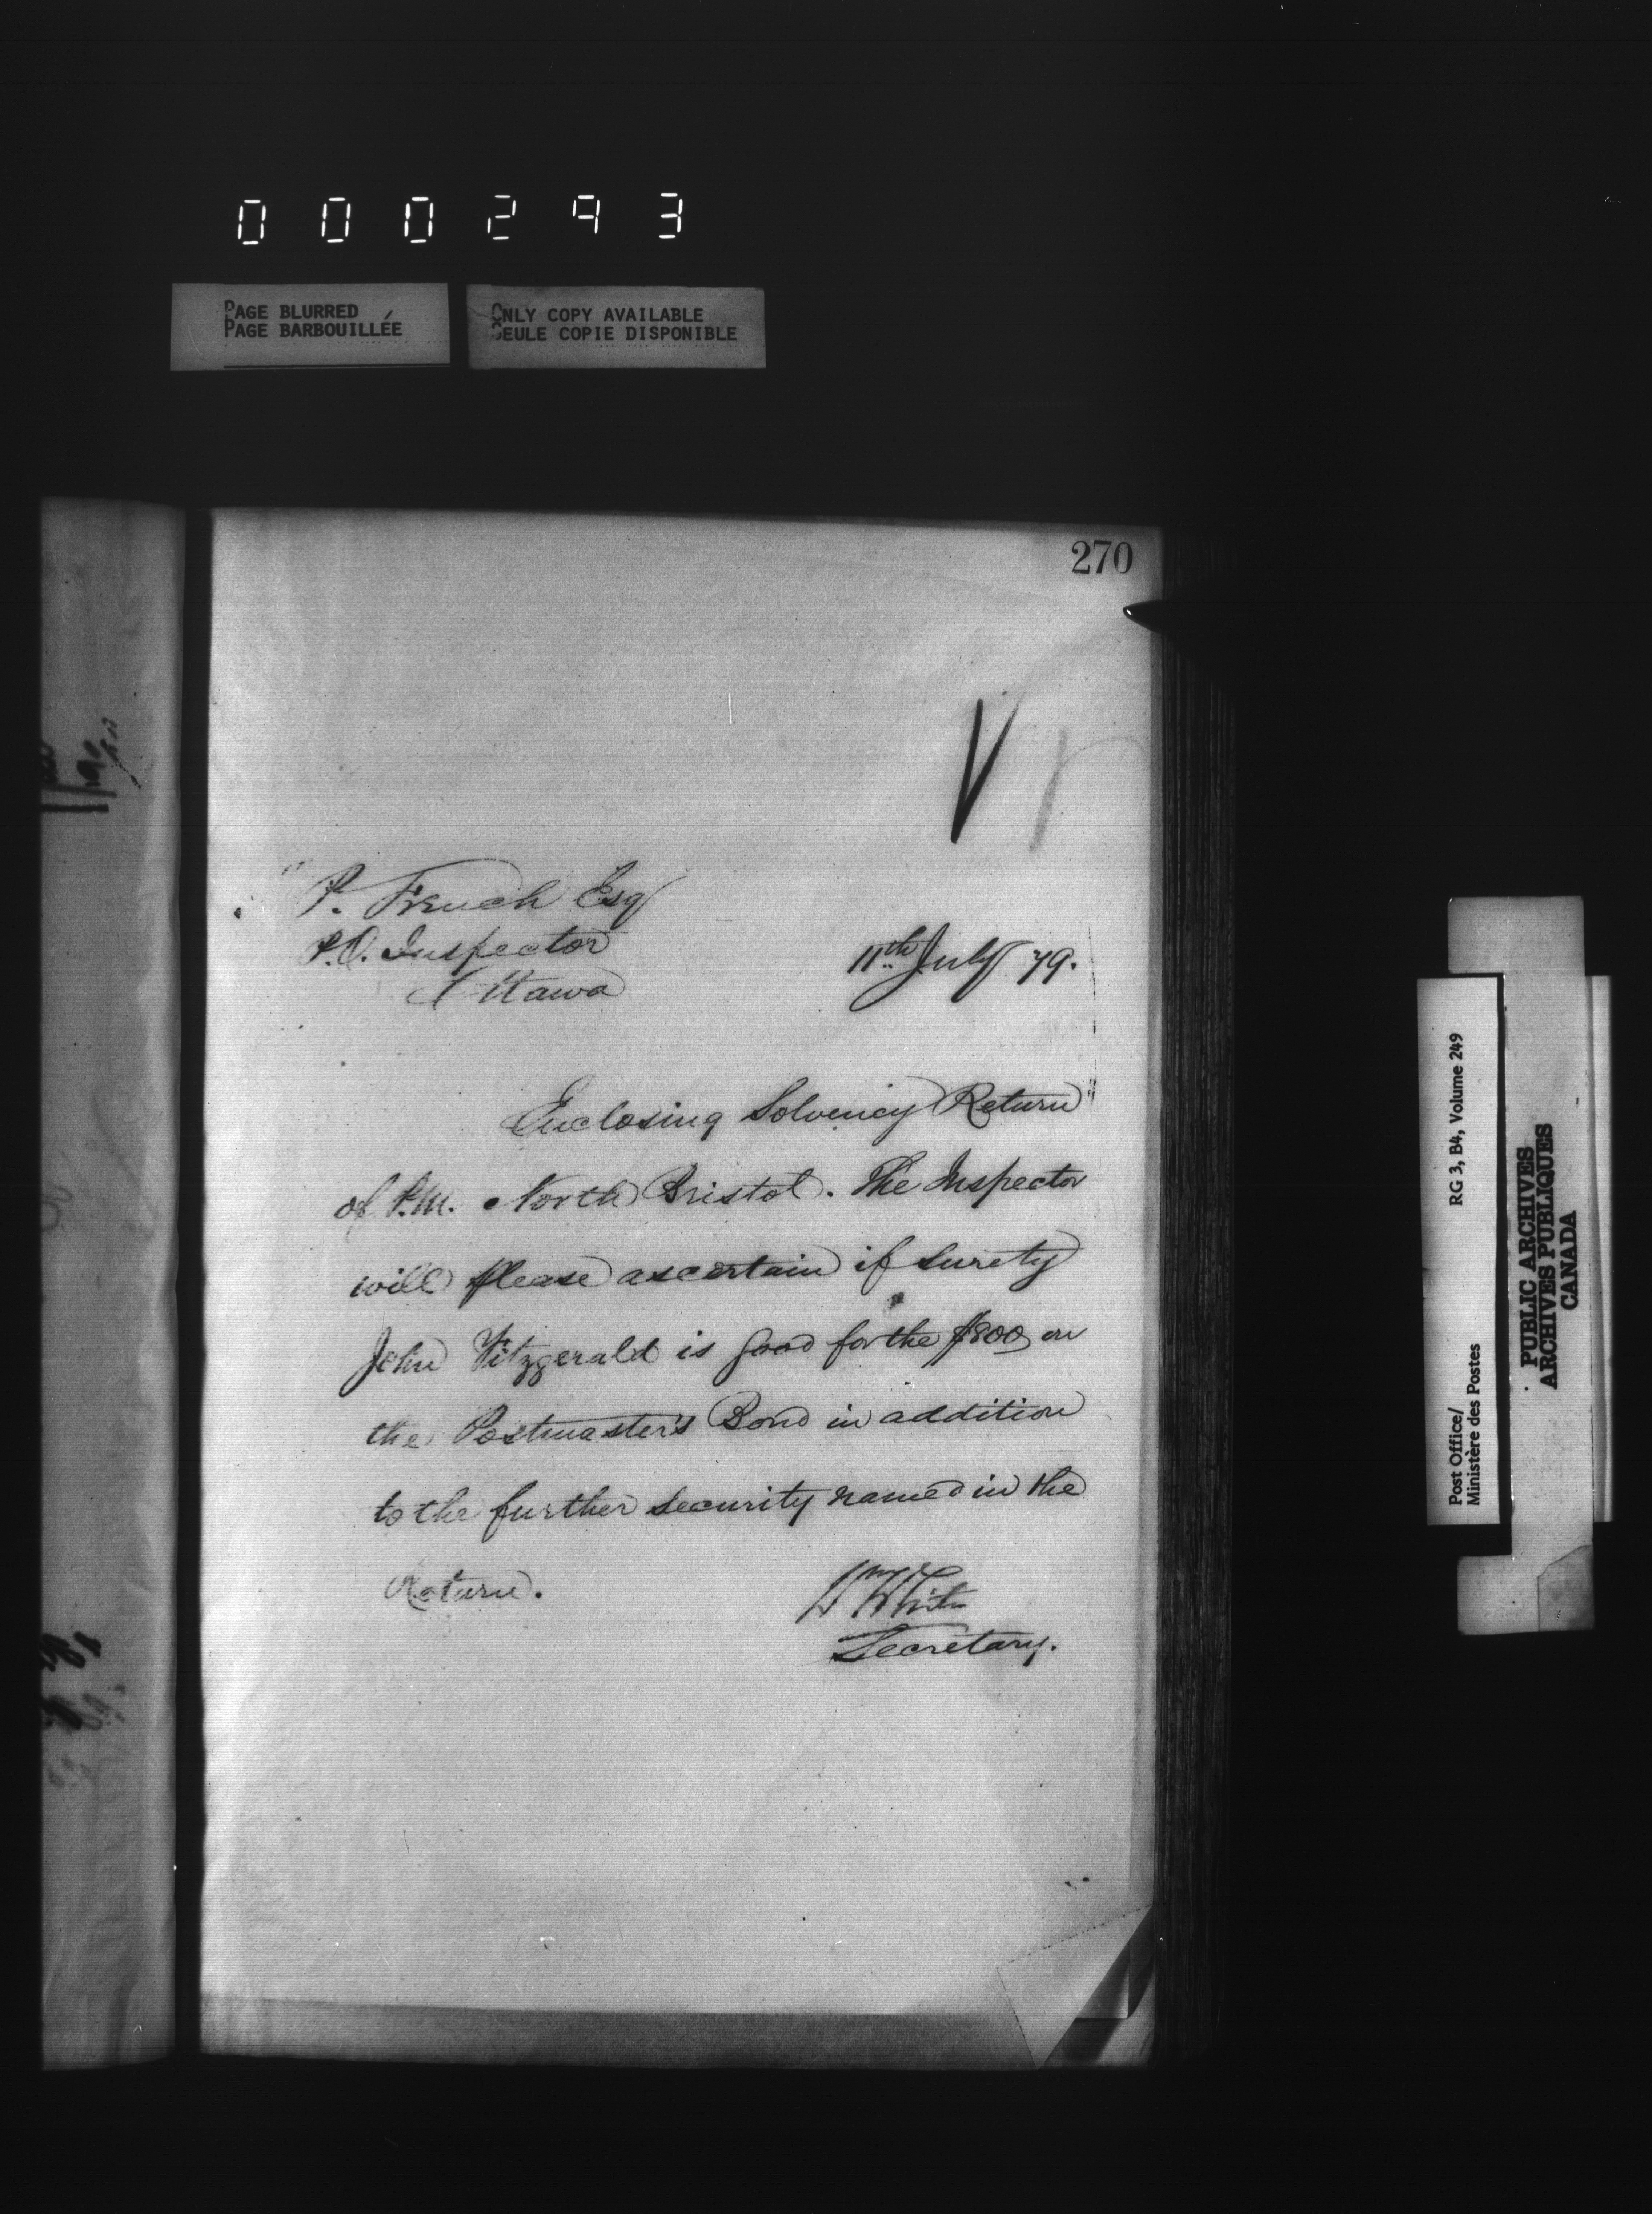 000293
PAGE BLURRED
PAGE BARBOUILLÉE
ONLY COPY AVAILABLE
SEULE COPIE DISPONIBLE
270
P. French Esq
P.O. Inspector
Ottawa
11th July 79.
Enclosing Solvency Return
of P.M. North Bristol. The Inspector
will please ascertain if surety
John Fitzgerald is good for the $800 on
the Postmaster's Bond in addition
to the further security named in the
Return.
W White
Secretary.
Post Office/
Ministère des Postes
RG 3, B4, Volume 249
PUBLIC ARCHIVES
ARCHIVES PUBLIQUES
CANADA